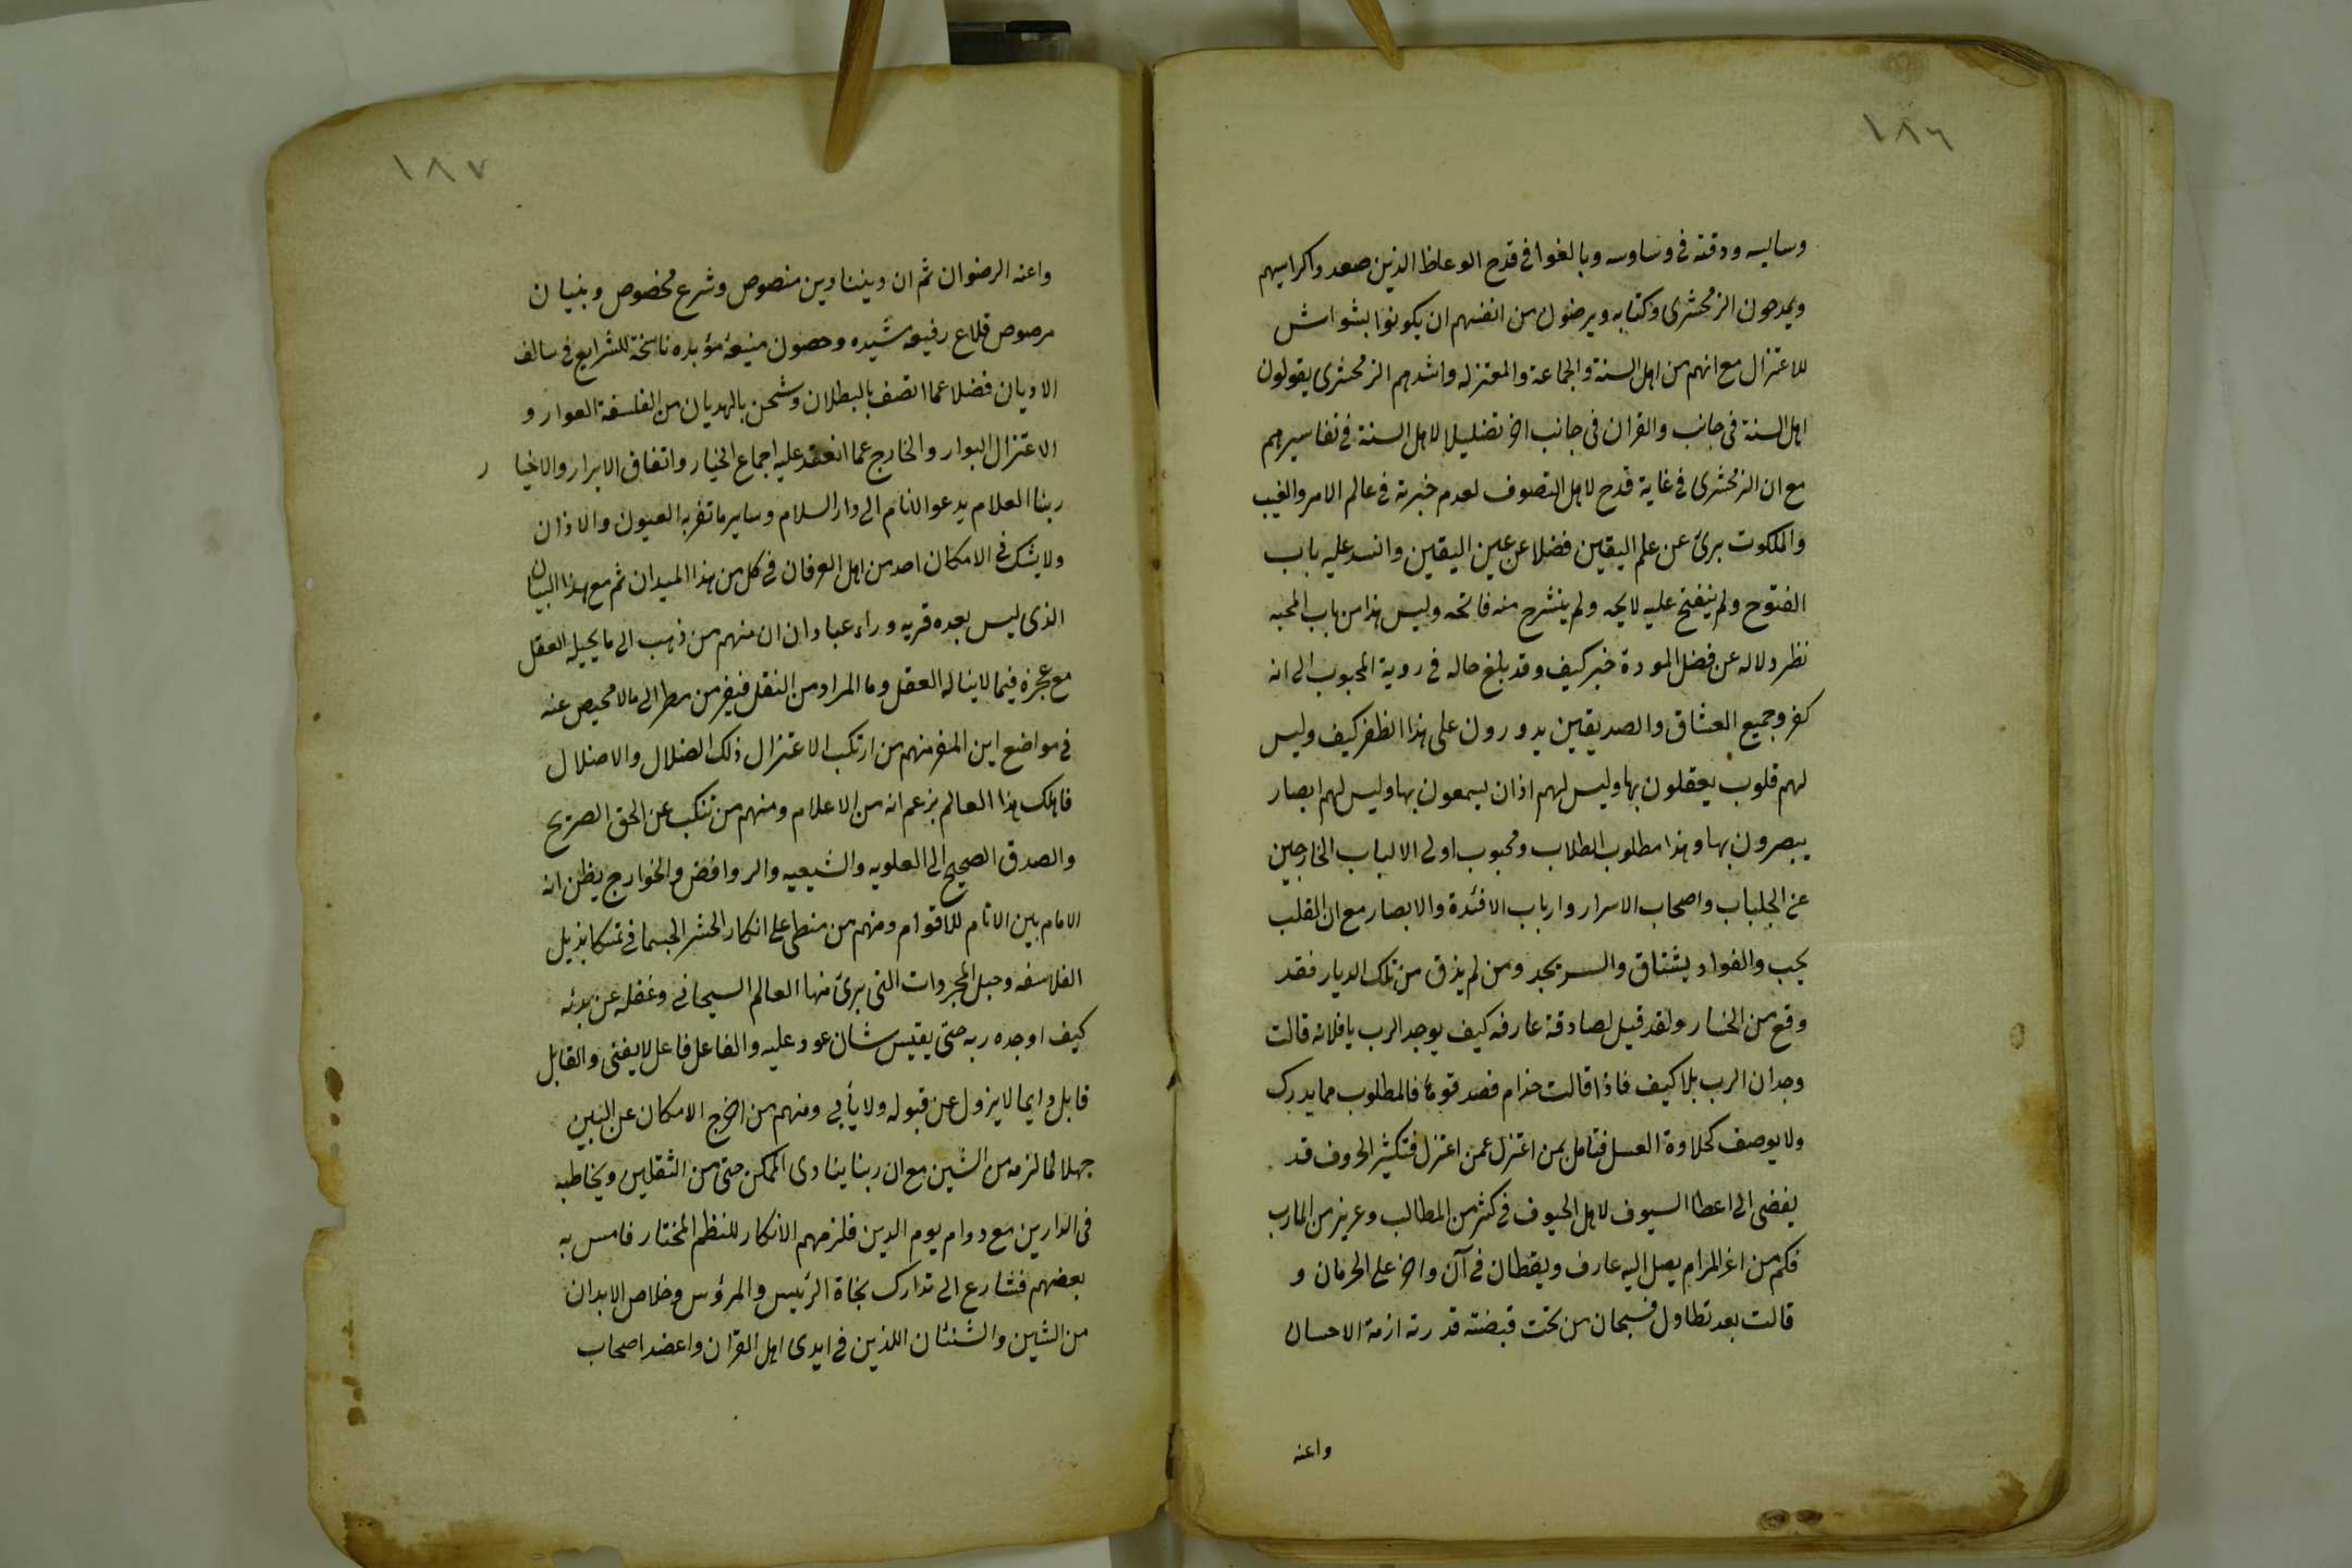 ١٨٦
وسايسه ودقته فى وساوسه وبالغوا فى قدح الوعاظ الذين صعدوا كراسيهم
ويمدحون الزمخشرى وكتابه ويرضون من انفسهم ان يكونوا بشواش
للاعتزال مع انهم من اهل السنة والجماعة والمعتزله واشدهم الزمخشرى يقولون
اهل السنة فى جانب والقران فى جانب اخر تضليلا لاهل السنة فى تفاسيرهم
مع ان الزمخشرى فى غاية قدح لاهل التصوف لعدم خبرته فى عالم الامر والغيب
والملكوت برئ عن علم اليقين فضلا عن عين اليقين وانسد عليه باب
الفتوح ولم ينفتح عليه لايحه ولم ينشرح منه فاتحه وليس هذا من باب المحبه
نظر ولاله عن فضل المودة خبر كيف وقد بلغ حاله فى روية المحبوب الى انه
كفر وجميع العشاق والصديقين يدورون على هذا الظفر كيف وليس
لهم قلوب يعقلون بها وليس لهم اذان يسمعون بها وليس لهم ابصار
يبصرون بها وهذا مطلوب الطلاب ومحبوب اولى الالباب الخارجين
عن الجلباب واصحاب الاسرار وارباب الافئدة والابصار مع ان القلب
يحب والفواد يشتاق والسر يجد ومن لم يذق من تلك الديار فقد
وقع من الخسار ولقد قيل لصادقة عارفه كيف يوجد الرب يا فلانه قالت
وجدان الرب بلا كيف فاذا قالت حذام فصدقوها فالمطلوب مما يدرك
ولا يوصف كحلاوة العسل فتامل بمن اعتزل عمن اعتزل فتكثير الحروف قد
يفضى الى اعطا السيوف لاهل الحيوف فى كثر من المطالب وعريز من المارب
فكم من اعز المرام يصل اليه عارف ويقظان فى آن واخر على الحرمان و
قالت بعد تطاول فسبحان من تحت قبضته قدرته ازمة الاحسان
واعنه
١٨٧
واعنه الرضوان ثم ان ديننا دين منصوص وشرع مخصوص وبنيان
مرصوص قلاع رفيعه شيده وحصون منيعة مؤبده ناسخة للشرايع فى سالف
الاديان فضلا عما اتصف بالبطلان وشحن بالهديان من الفلسفة العوار و
الاعتزال البوار والخارج عما انعقد عليه اجماع الخيار واتفاق الابرار والاخيار
ربنا العلام يدعو الانام الى دار السلام وساير ما تقر به العيون والاذان
ولا يشك فى الامكان احد من اهل العرفان فى كل من هذا الميدان ثم مع هذا البيان
الذى ليس بعده قريه وراء عبادان ان منهم من ذهب الى ما يحيله العقل
مع عجزه فيما لا يناله العقل وما المراد من النقل فيفر من مطر الى مالا محيص عنه
فى مواضع اين المفر منهم من ارتكب الاعتزال ذلك الضلال والاضلال
فاهلك هذا العالم بزعم انه من الاعلام ومنهم من تنكب عن الحق الصريح
والصدق الصحيح الى العلويه والشيعيه والروافض والخوارج يظن انه
الامام بين الانام للاقوام ومنهم من منطى على انكار الحشر الجسمانى تمسكا بذيل
الفلاسفه وحبل المجردات التى برئ منها العالم السبحانى وغفله عن بدئه
كيف اوجده ربه حتى يقيس شان عود عليه والفاعل فاعل لا يفنى والقابل
قابل دايما لا يزول عن قبوله ولا يأبى ومنهم من اخرج الامكان عن البين
جهلا لما لزمه من الشين مع ان ربنا ينادى الممكن حتى من الثقلين ويخاطبه
فى الدارين مع دوام يوم الدين فلزمهم الانكار للنظم المختار فامس به
بعضهم فشارع الى تدارك نجاة الرئيس والمرؤس وخلاص الابدان
من الشين والشنئان اللذين فى ايدى اهل القران واعضد اصحاب